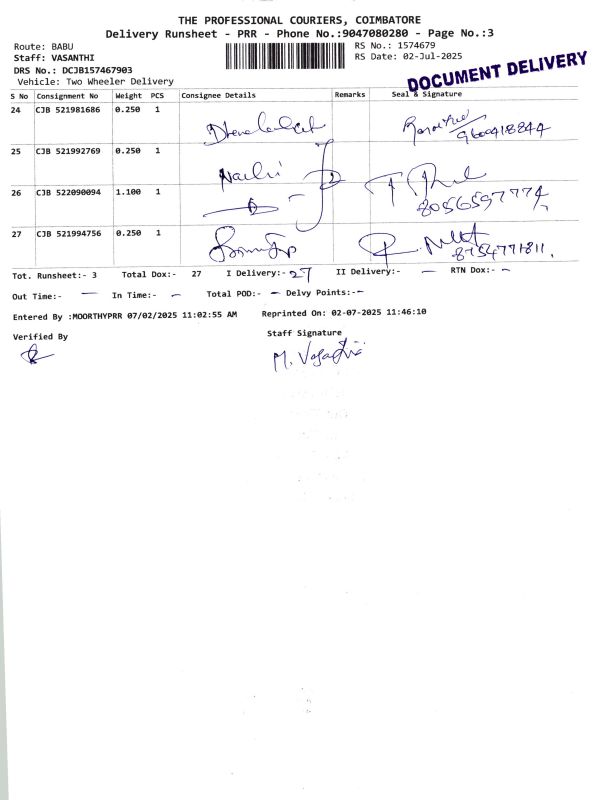 THE PROFESSIONAL COURIERS, COIMBATORE
Delivery Runsheet - PRR - Phone No.:9047080280 - Page No.:3
Route: BABU
RS No.: 1574679
Staff: VASANTHI
RS Date: 02-Jul-2025
DRS No.: DCJB157467903
Vehicle: Two Wheeler Delivery
DOCUMENT DELIVERY
S No Consignment No Weight PCS Consignee Details Remarks Seal & Signature
24 CJB 521981686 0.250 1
9600418244
25 CJB 521992769 0.250 1
26 CJB 522090094 1.100 1
8056597774
27 CJB 521994756 0.250 1
8754771811.
Tot. Runsheet:- 3 Total Dox:- 27 I Delivery:- 27 II Delivery:- — RTN Dox:- –
Out Time:- — In Time:- – Total POD:- – Delvy Points:-–
Entered By :MOORTHYPRR 07/02/2025 11:02:55 AM Reprinted On: 02-07-2025 11:46:10
Verified By Staff Signature